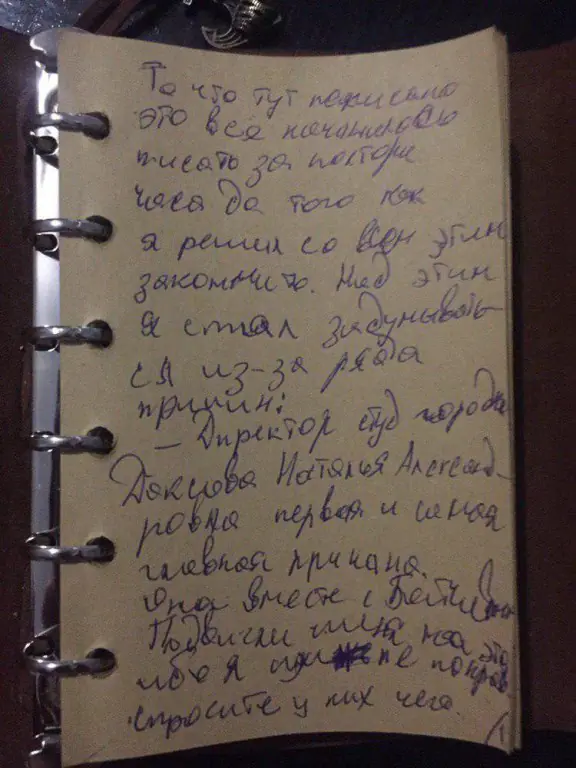 То что тут написано
это всё начиналось
писать за полтора
часа до того как
я решил со всем этим
закончить. Над этим
я стал задумывать-
ся из-за ряда
причин:
– Директор студ городка
Наталья Александ-
ровна первая и самая
главная причина.
Она вместе с
Подвигли меня на это
ибо я им не понрав
спросите у них чего.